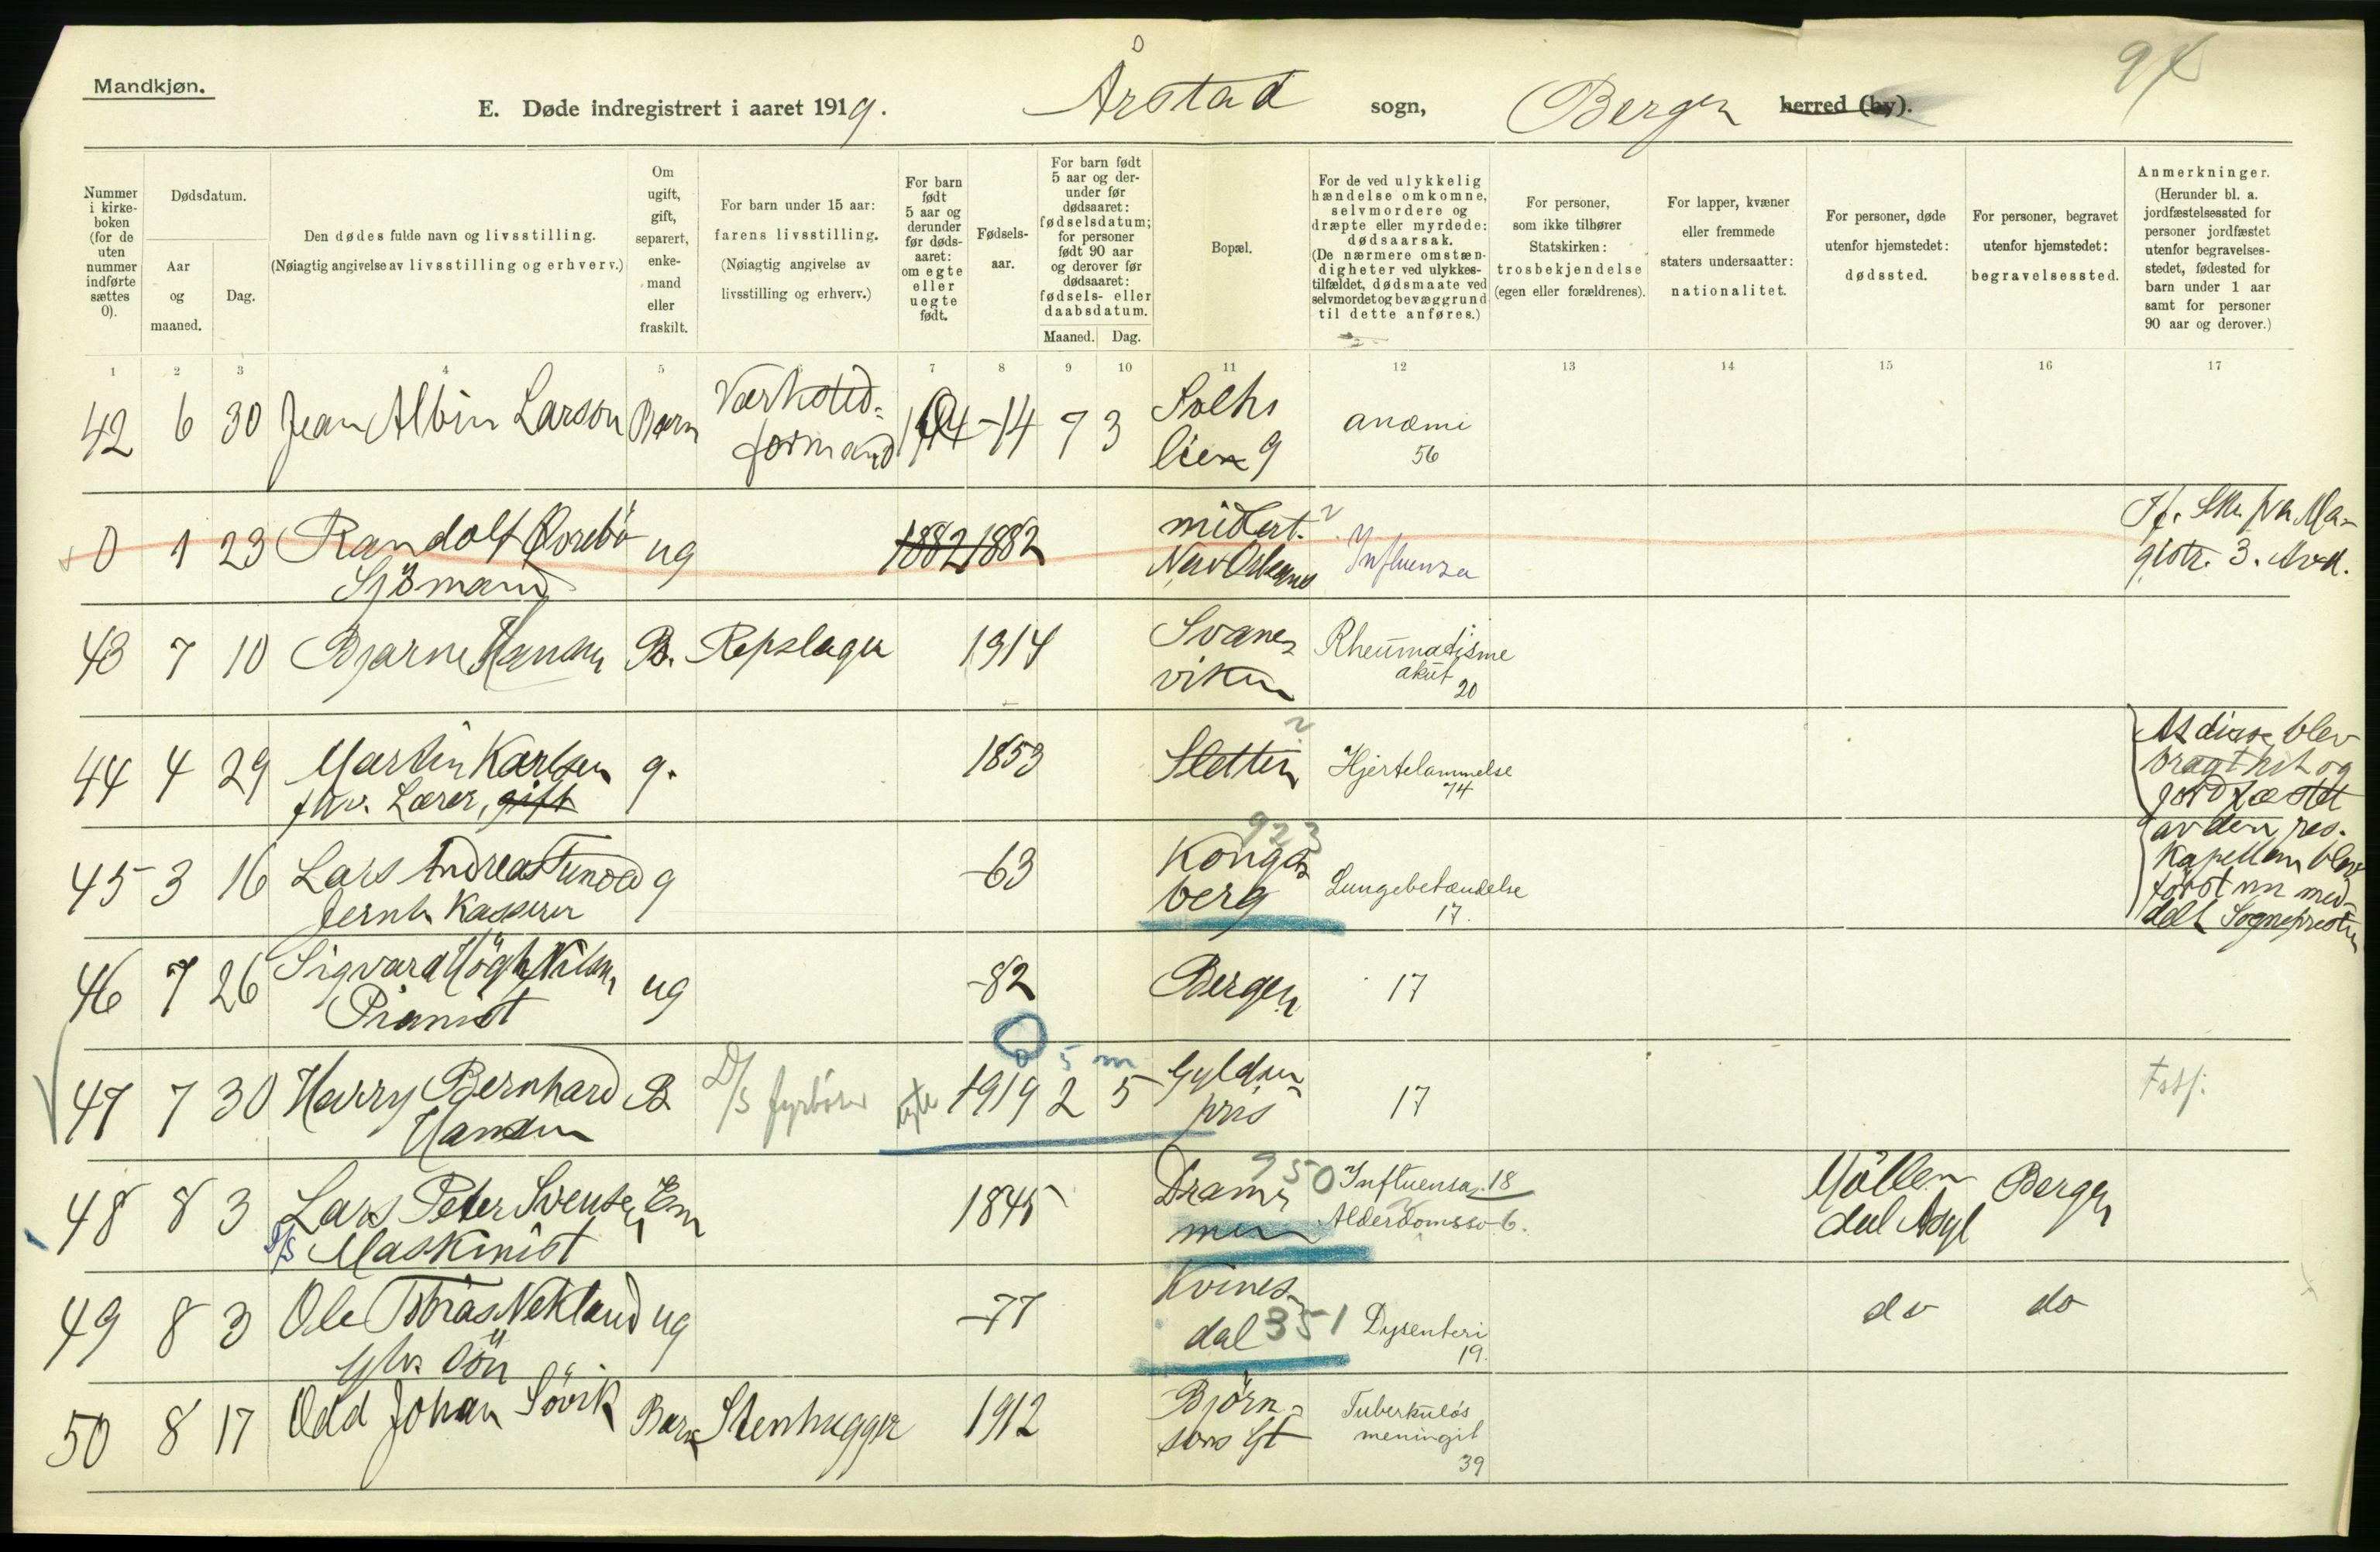 Mandkjøn.
E. Døde indregistrert i aaret 1919. Årstad sogn, Bergen herred (by).
Nummer i kirke-boken (for de uten nummer indførte sættes 0).
Dødsdatum.
Aar og maaned.
Dag.
Den dødes fulde navn og livsstilling.
(Nøiagtig angivelse av livsstilling og erhverv.)
Om ugift, gift, separert, enke-mand eller fraskilt.
For barn under 15 aar:
farens livsstilling.
(Nøiagtig angivelse av livsstilling og erhverv.)
For barn født 5 aar og derunder før døds-aaret: om egte eller uegte født.
Fødsels-aar.
For barn født 5 aar og der-under før dødsaaret: fødselsdatum; for personer født 90 aar og derover før dødsaaret: fødsels- eller daabsdatum.
Maaned. Dag.
Bopæl.
For de ved ulykkelig hændelse omkomne, selvmordere og dræpte eller myrdede: dødsaarsak.
(De nærmere omstæn-digheter ved ulykkes-tilfældet, dødsmaate ved selvmordet og bevæggrund til dette anføres.)
For personer, som ikke tilhører Statskirken: trosbekjendelse (egen eller forældrenes).
For lapper, kvæner eller fremmede staters undersaatter: nationalitet.
For personer, døde utenfor hjemstedet: dødssted.
For personer, begravet utenfor hjemstedet: begravelsessted.
Anmerkninger.
(Herunder bl. a. jordfæstelsessted for personer jordfæstet utenfor begravelses-stedet, fødested for barn under 1 aar samt for personer 90 aar og derover.)
1 2 3 4 5 7 8 9 10 11 12 13 14 15 16 17
42 6 30 Jean Albin Larson Barn Værksted-formand -14 7 3 Solhs lien 9 anæmi 56
0 1 23 Randolf Øvrebö Sjömand ug 1882 1882 midlert. New Orleans Influenza
gistr. 3. Avd.
43 7 10 Bjarne Hansen B. Repslager 1914 Svanes viken Rheumatisme akut 20
44 4 29 Martin Karlsen fhv. Lærer, gift g. 1853 Sletten Hjertelammelse 74
At disse blev
bragt hit og
jordfæstet
av den res.
Kapellan blev
først nu med-
delt Sognepresten
45 3 16 Lars Andreas Tunold Jernb. Kasserer g -63 Kongs berg 923 Lungebetændelse 17.
46 7 26 Sigvard Högh Nilsen Pianist ug -82 Bergen 17
0 5 m
47 7 30 Harry Bernhard Hansen B D/S fyrbøter egte 1919 2 5 Gylden pris 17
48 8 3 Lars Peter Svensen D/S Maskinist Em 1845 Dram men 950 Influensa 18 Alderdomssv. 6. Möllen dal Asyl Bergen
49 8 3 Ole Tobias Nekland gbr. sön ug -77 Kvines dal 351 Dysenteri 19. do do
50 8 17 Odd Johan Sövik Barn Stenhugger 1912 Björn-sons Gt Tuberkuløs meningit 39